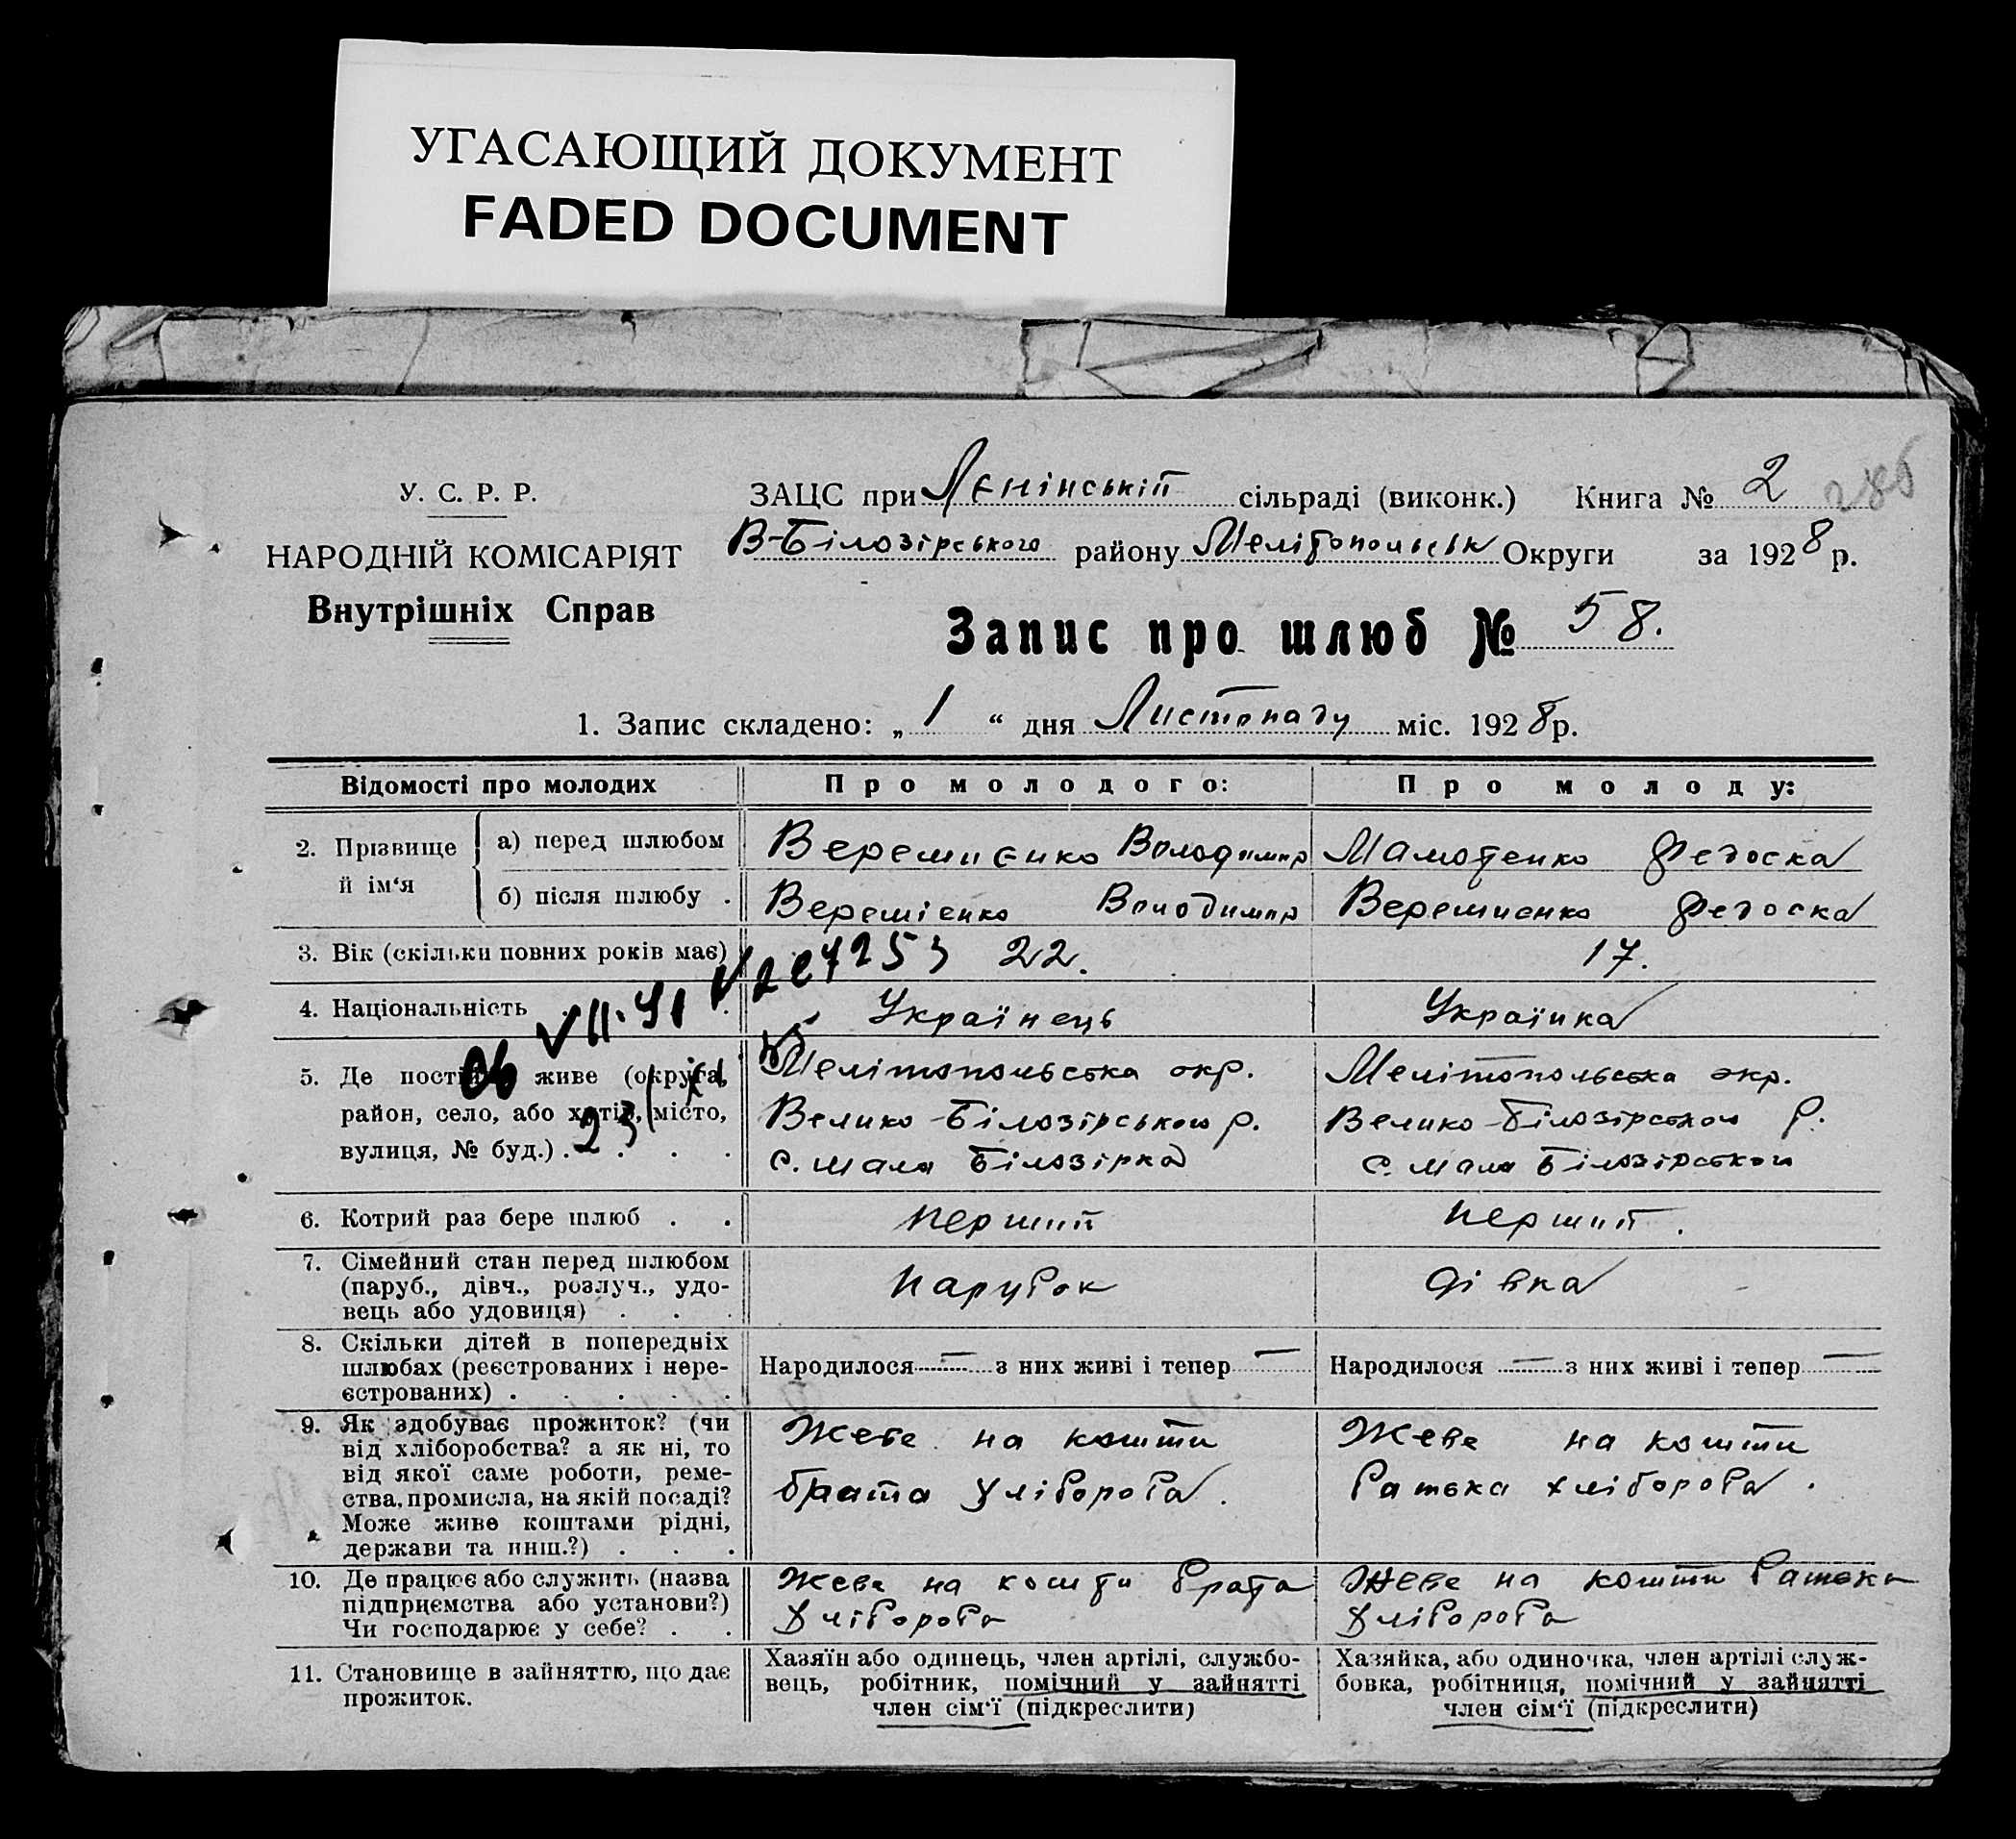 УГАСАЮЩИЙ ДОКУМЕНТ
FADED DOCUMENT
У. С. Р. Р.
НАРОДНІЙ КОМІСАРІЯТ
Внутрішніх Справ
ЗАЦС при Ленінській сільраді (виконк.) Книга № 2 286
В-Білозірського району Мелітопольськ Округи за 1928 р.
Запис про шлюб № 58.
1. Запис складено: „ 1 “ дня Листопаду міс. 1928 р.
Відомості про молодих
Про молодого:
Про молоду:
2. Прізвище й ім‘я
а) перед шлюбом
Веремиенко Володимир
Мамотенко Федоска
б) після шлюбу .
Веремієнко Володимир
Веремиенко Федоска
3. Вік (скільки повних років має)
22.
17.
4. Національність
Українець
Українка
5. Де постійно живе (округа,
район, село, або хутір, місто,
вулиця, № буд.) . . . .
23
Мелітопольська окр.
Велико-Білозірського р.
с. Мала Білозірка
Мелітопольська окр.
Велико-Білозірского р.
с. Мала Білозірского
6. Котрий раз бере шлюб . .
перший
перший .
7. Сімейний стан перед шлюбом
(паруб., дівч., розлуч., удо-
вець або удовиця) . . .
парубок
дівка
8. Скільки дітей в попередніх
шлюбах (реєстрованих і нере-
єстрованих) . . . . .
Народилося — з них живі і тепер —
Народилося — з них живі і тепер —
9. Як здобуває прожиток? (чи
від хліборобства? а як ні, то
від якої саме роботи, реме-
ства, промисла, на якій посаді?
Може живе коштами рідні,
держави та инш.?) . . .
Жеве на кошти
брата хлібороба.
Жеве на кошти
батька хлібороба .
10. Де працює або служить (назва
підприємства або установи?)
Чи господарює у себе? . .
Жеве на кошти брата
хлібороба
Жеве на кошти батька
хлібороба
11. Становище в зайняттю, що дає
прожиток.
Хазяїн або одинець, член артілі, службо-
вець, робітник, помічний у зайнятті
член сім‘ї (підкреслити)
Хазяйка, або одиночка, член артілі служ-
бовка, робітниця, помічний у зайнятті
член сім‘ї (підкреслити)